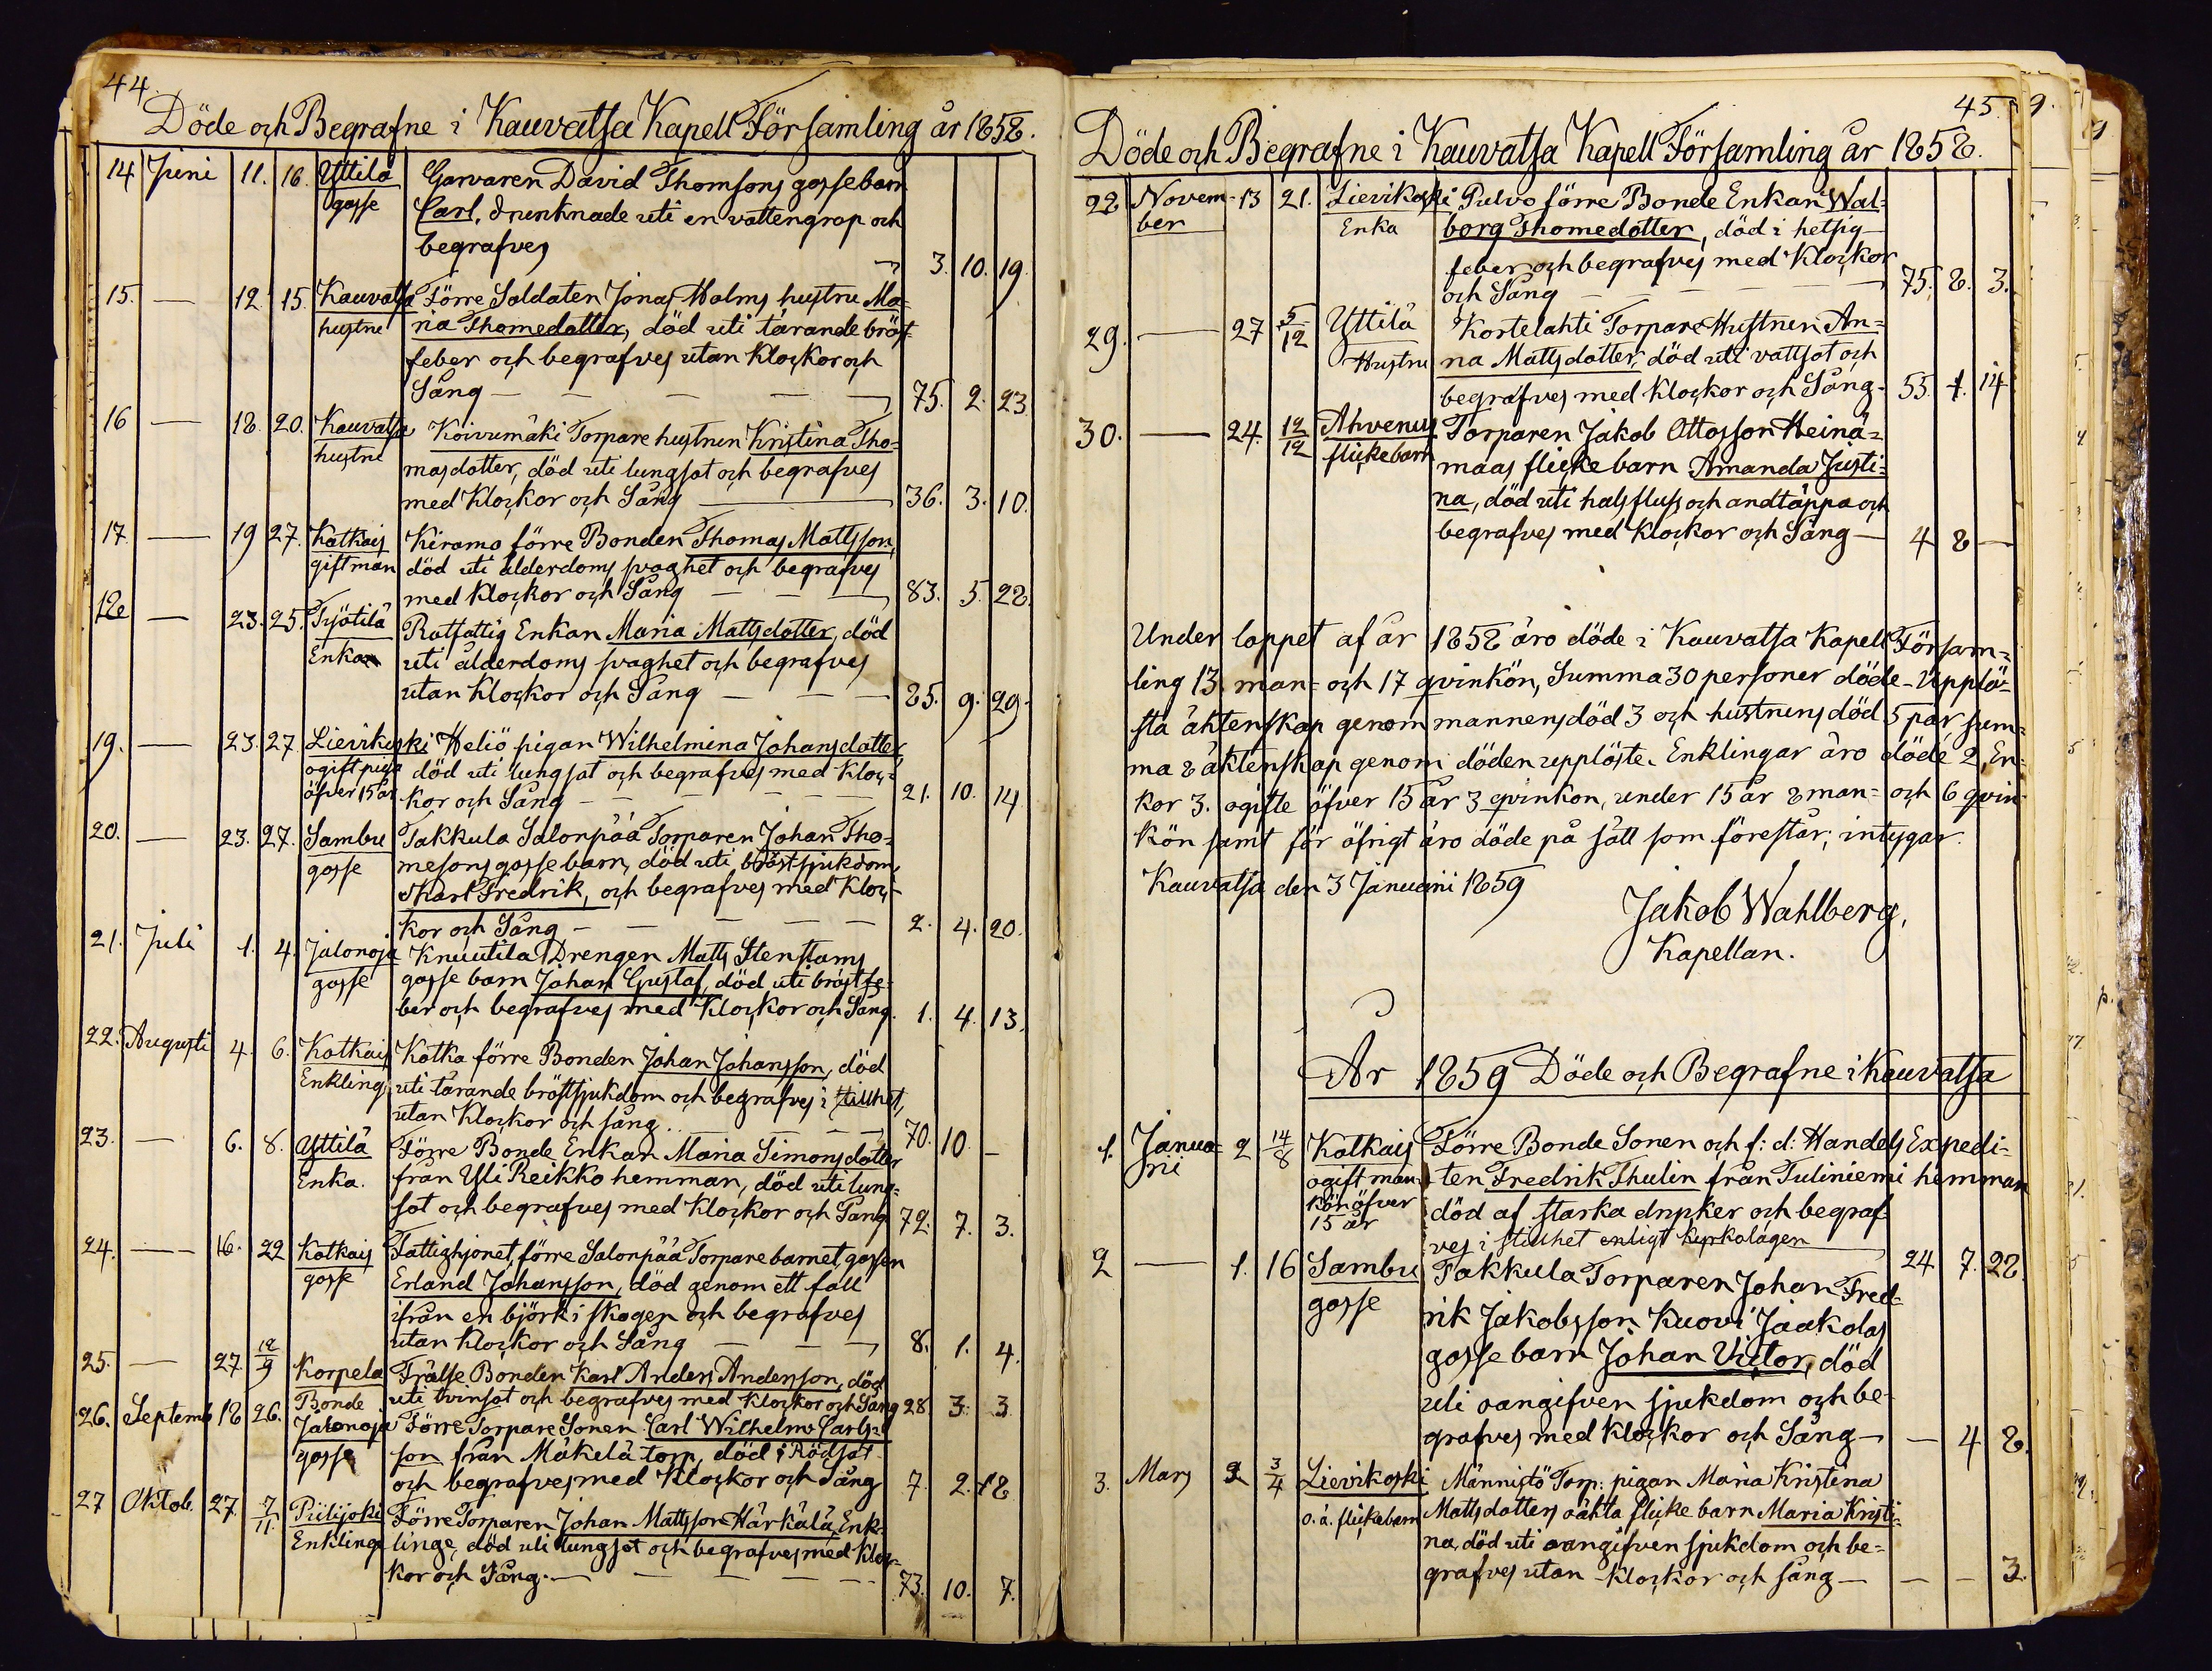 44.
Döde och Begrafne i Kauvatsa Kapell Församling år 1858.
14 Juni 11. 16. Yttilä Garvaren David Thomsons gossebarn
gosse Carl, drunknade uti en vattengrop och
begrafves 3. 10. 19.
15. — 12. 15. Kauvatsa Förre Soldaten Jonas Holms hustru Ma=
hustru ria Thomedotter, död uti tärande bröst
feber och begrafves utan Klockor och
Sång — 75. 2. 23.
16 — 18. 20. Kauvatsa Koivumäki Torpare hustrun Kristina Tho=
hustru masdotter, död uti lungsot och begrafves
med Klockor och Sång — 36. 3. 10.
17. — 19 27. Katkais Keramo förre Bonden Thomas Mattsson,
gift man död uti ålderdoms svaghet och begrafves
med Klockor och Sång — 83. 5. 28.
18 — 23. 25. Työtilä Rotfattig Enkan Maria Mattsdotter, död
Enka uti ålderdoms svaghet och begrafves
utan Klockor och Sång — 85. 9. 29.
19. — 23. 27. Lievikoski Heliö pigan Wilhelmina Johansdotter,
ogift piga död uti lungsot och begrafves med Kloc=
öfver 15 år kor och Sång — 21. 10. 14
20. — 23. 27. Sambu Takkula Salonpää Torparen Johan Tho=
gosse mesons gosse barn, död uti bröstsjukdom,
Karl Fredrik, och begrafves med Kloc-
kor och Sång — 2. 4. 20.
21. Juli 1. 4. Jalonoja Knuutila Drengen Matts Stenstams
gosse gosse barn Johan Gustaf, död uti bröstfe-
ber och begrafves med Klockor och Sång. 1. 4. 13.
22. Augusti 4. 6. Katkais Katka förre Bonden Johan Johansson, död
Enkling uti tärande bröstsjukdom och begrafves i stillhet,
utan Klockor och sång. — 70. 10. —
23. — 6. 8. Yttilä Förre Bonde Enkan Maria Simonsdotter
Enka. från Yli Reikko hemman, död uti lung=
sot och begrafves med Klockor och Sång 72. 7. 3.
24. — 16. 22 Katkais Fattighjonet, förre Salonpää Torpare barnet, gossen
gosse Erland Johansson, död genom ett fall
ifrån en björk i skogen och begrafves
utan Klockor och Sång — 8. 1. 4.
25. — 27. 12/9 Korpela Frälse Bonden Karl Anders Andersson, död
Bonde uti tvinsot och begrafves med Klockor och Sång 28. 3. 3
26. Septemb 18 26. Jalonoja Förre Torpare Sonen Carl Wilhelm Carls=
gosse son från Mäkelä torp, död i Rödsot
och begrafves med Klockor och Sång 7. 2. 18
27 Oktob. 27. 7/11. Piilijoki Förre Torparen Johan Mattsson Härkälä, Enk-
Enkling linge, död uti lungsot och begrafves med Kloc-
kor och Sång. — 73. 10. 7.
45.
Döde och Begrafne i Kauvatsa Kapell Församling år 1858.
28 Novem- 13 21. Lievikoski Pulvo förre Bonde Enkan Wal=
ber Enka borg Thomedotter, död i hetsig
feber och begrafves med Klockor
och Sång — 75. 8. 3.
29. — 27 5/12 Yttilä Kortelahti Torpare Hustrun An=
Hustru na Mattsdotter, död uti vattsot och
begrafves med Klockor och Sång. 55. 1. 14
30. — 24. 12/12 Ahvenus Torparen Jakob Ottosson Heinä=
flickebarn maas flicke barn Amanda Justi=
na, död uti halsfluss och andtäppa och
begrafves med Klockor och Sång — 4 8 —
Under loppet af år 1858 äro döde i Kauvatsa Kapell Försam=
ling 13. man= och 17 qvinkön, Summa 30 personer döde - Upplö=
sta äktenskap genom mannens död 3 och hustruns död 5 par sum=
ma 8 äktenskap genom döden upplöste. Enklingar äro döde 2, En=
kor 3. ogifte öfver 15 år 3 qvinkön, under 15 år 8 man= och 6 qvin
kön samt för öfrigt äro döde på sätt som förestår; intygar.
Kauvatsa den 3 Januarii 1859
Jakob Wahlberg,
Kapellan.
År 1859 Döde och Begrafne i Kauvatsa
1. Janua= 2 14/8 Katkais Förre Bonde Sonen och f: d: Handels Expedi=
ri ogift man ten Fredrik Thulin från Tuliniemi hemman
kön öfver död af starka drycker och begraf=
15 år ves i stillhet enligt kyrkolagen 24 7. 28.
2 — 1. 16 Sambu Takkula Torparen Johan Fred=
gosse rik Jakobsson Kuovi Jaakolas
gosse barn Johan Victor, död
uti oangifven sjukdom och be-
grafves med Klockor och Sång — — 4 8.
3. Mars 2 3/4 Lievikoski Männistö Torp: pigan Maria Kristina
o. ä. flickebarn Mattsdotters oäkta flicke barn Maria Kristi=
na, död uti oangifven sjukdom och be=
grafves utan Klockor och sång — — — 3.